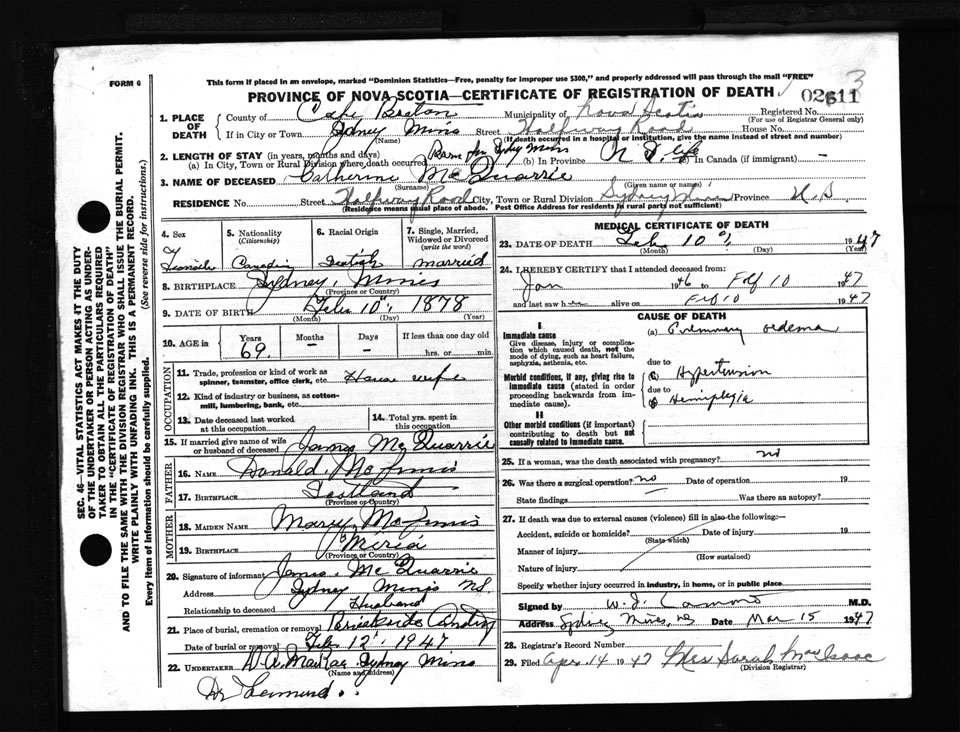 FORM 6
This form if placed in an envelope, marked "Dominion Statistics—Free, penalty for improper use $300," and properly addressed will pass through the mail "FREE"
3
PROVINCE OF NOVA SCOTIA—CERTIFICATE OF REGISTRATION OF DEATH
02611
1. PLACE OF DEATH
County of Cape Breton Municipality of Nova Scotia Registered No.
(For use of Registrar General only)
If in City or Town Sydney Mines Street Halfway Road House No.
(Name) (If death occurred in a hospital or institution, give the name instead of street and number)
2. LENGTH OF STAY (in years, months and days)
(a) In City, Town or Rural Division where death occurred Born in Sydney Mines (b) In Province N S life (c) In Canada (if immigrant) —
3. NAME OF DECEASED Catherine McQuarrie
(Surname) (Given name or names)
RESIDENCE No. Street Halfway Road City, Town or Rural Division Sydney Mines Province N.S
(Residence means usual place of abode. Post Office Address for residents in rural parts not sufficient)
4. Sex Female
5. Nationality (Citizenship) Canadian
6. Racial Origin Scotish
7. Single, Married, Widowed or Divorced (write the word) married
8. BIRTHPLACE Sydney Mines
(Province or Country)
9. DATE OF BIRTH Feb 10" 1878
(Month) (Day) (Year)
10. AGE in Years 69. Months — Days — If less than one day hrs. or min.
OCCUPATION
11. Trade, profession or kind of work as spinner, teamster, office clerk, etc. House wife
12. Kind of industry or business, as cotton-mill, lumbering, bank, etc.
13. Date deceased last worked at this occupation
14. Total yrs. spent in this occupation
15. If married give name of wife or husband of deceased James McQuarrie
FATHER
16. NAME Donald McInnis
17. BIRTHPLACE Scotland
(Province or Country)
MOTHER
18. MAIDEN NAME Mary McInnis
19. BIRTHPLACE Mira
(Province or Country)
20. Signature of informant James McQuarrie
Address Sydney Mines NS.
Relationship to deceased Husband
21. Place of burial, cremation or removal
Date of burial or removal Feb 12" 1947
22. UNDERTAKER D A MacRae Sydney Mines
(Name and address)
Dr
MEDICAL CERTIFICATE OF DEATH
23. DATE OF DEATH Feb 10" 1947
(Month) (Day) (Year)
24. I HEREBY CERTIFY that I attended deceased from:
Jan 1946 to Feb 10 1947
and last saw h alive on Feb 10 1947
CAUSE OF DEATH
I
Immediate cause
Give disease, injury or complication which caused death, not the mode of dying, such as heart failure, asphyxia, asthenia, etc.
(a) Pulmonary oedema
due to
Morbid conditions, if any, giving rise to immediate cause (stated in order proceeding backwards from immediate cause).
(b) Hypertension
due to
(c) Hemiplegia
II
Other morbid conditions (if important) contributing to death but not causally related to immediate cause.
25. If a woman, was the death associated with pregnancy? no
26. Was there a surgical operation? no Date of operation 19
State findings Was there autopsy?
27. If death was due to external causes (violence) fill in also the following:—
Accident, suicide or homicide? Date of injury 19
(State which)
Manner of injury
(How sustained)
Nature of injury
Specify whether injury occurred in industry, in home, or in public place
Signed by W. J. Lamont M.D.
Address Sydney Mines, NS Date Mar 15 1947
28. Registrar's Record Number
29. Filed Apr. 14 1947 Mrs Sarah MacIsaac
(Division Registrar)
SEC. 46—VITAL STATISTICS ACT MAKES IT THE DUTY
OF THE UNDERTAKER OR PERSON ACTING AS UNDERTAKER TO OBTAIN ALL THE PARTICULARS REQUIRED
IN THE "CERTIFICATE OF REGISTRATION OF DEATH"
AND TO FILE THE SAME WITH THE DIVISION REGISTRAR WHO SHALL ISSUE THE BURIAL PERMIT.
WRITE PLAINLY WITH UNFADING INK. THIS IS A PERMANENT RECORD.
Every item of Information should be carefully supplied. (See reverse side for instructions.)